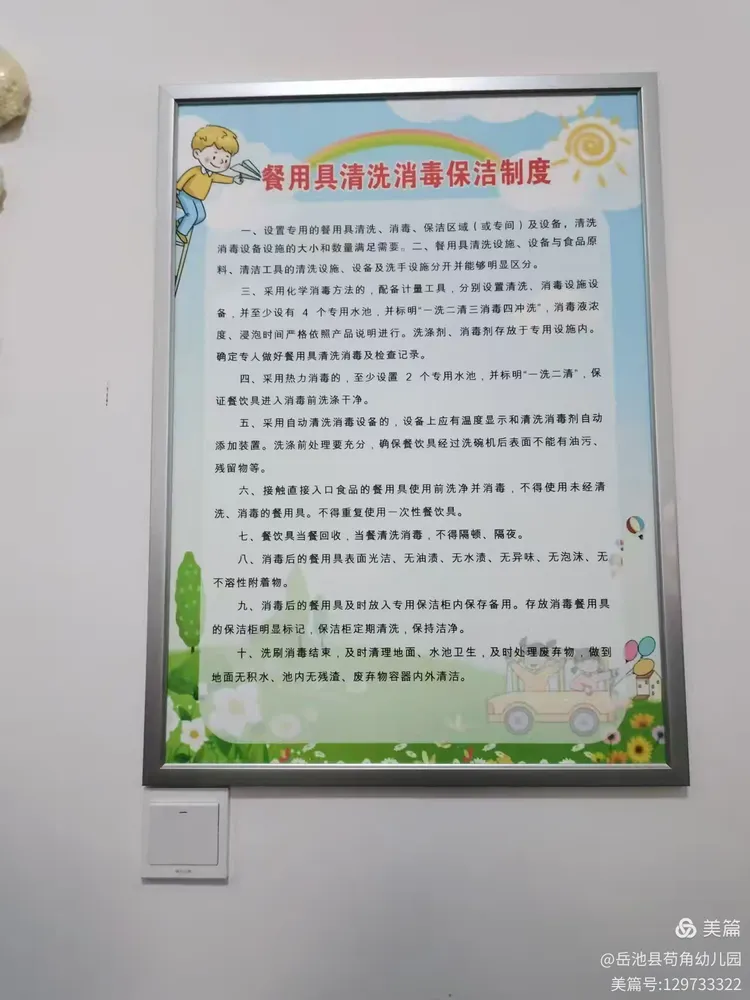 餐用具清洗消毒保洁制度
一、设置专用的餐用具清洗、消毒、保洁区域（或专间）及设备，清洗
消毒设备设施的大小和数量满足需要。二、餐用具清洗设施、设备与食品原
料、清洁工具的清洗设施、设备及洗手设施分开并能够明显区分。
三、采用化学消毒方法的，配备计量工具，分别设置清洗、消毒设施设
备，并至少设有 4 个专用水池，并标明“一洗二清三消毒四冲洗”，消毒液浓
度、浸泡时间严格依照产品说明进行。洗涤剂、消毒剂存放于专用设施内。
确定专人做好餐用具清洗消毒及检查记录。
四、采用热力消毒的，至少设置 2 个专用水池，并标明“一洗二清”，保
证餐饮具进入消毒前洗涤干净。
五、采用自动清洗消毒设备的，设备上应有温度显示和清洗消毒剂自动
添加装置。洗涤前处理要充分，确保餐饮具经过洗碗机后表面不能有油污、
残留物等。
六、接触直接入口食品的餐用具使用前洗净并消毒，不得使用未经清
洗、消毒的餐用具。不得重复使用一次性餐饮具。
七、餐饮具当餐回收，当餐清洗消毒，不得隔顿、隔夜。
八、消毒后的餐用具表面光洁、无油渍、无水渍、无异味、无泡沫、无
不溶性附着物。
九、消毒后的餐用具及时放入专用保洁柜内保存备用。存放消毒餐用具
的保洁柜明显标记，保洁柜定期清洗，保持洁净。
十、洗刷消毒结束，及时清理地面、水池卫生，及时处理废弃物，做到
地面无积水、池内无残渣、废弃物容器内外清洁。
美篇
@岳池县苟角幼儿园
美篇号:129733322